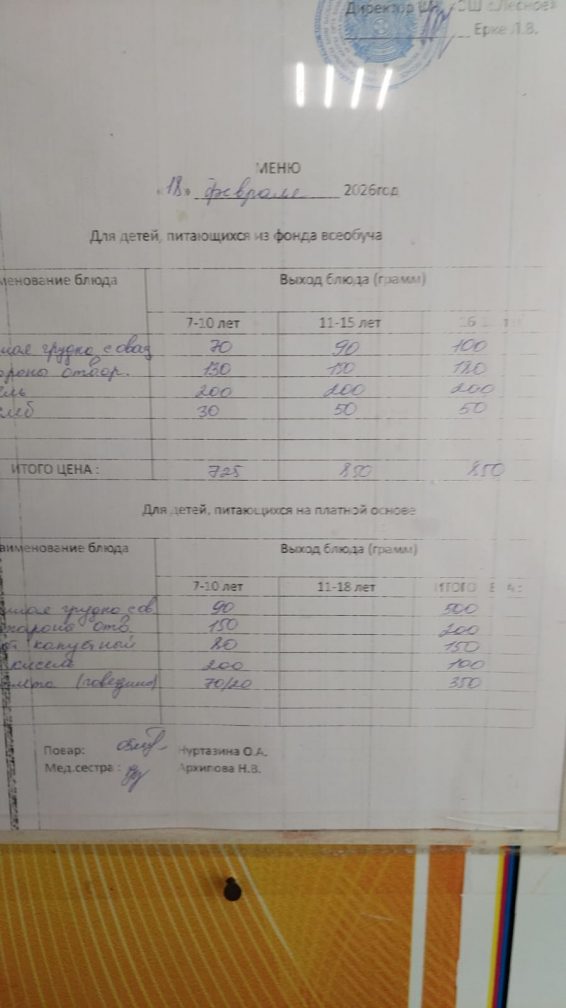 Директор Ш СШ с.Лесное»
Ерке Л.В.
МЕНЮ
«18» февраля 2026год
Для детей, питающихся из фонда всеобуча
менование блюда Выход блюда (грамм)
7-10 лет 11-15 лет 16
ная грудка с оваз 70 90 100
ароно отвар. 130 150 180
ель 200 200 200
леб 30 50 50
ИТОГО ЦЕНА : 725 850 850
Для детей, питающихся на платной основе
аименование блюда Выход блюда (грамм)
7-10 лет 11-18 лет ИТОГО
грудка с ов 90 500
карона отв 150 200
капустной 80 150
кисель 200 100
(говядина) 70/20 350
Повар: Нуртазина О.А.
Мед.сестра : Архипова Н.В.